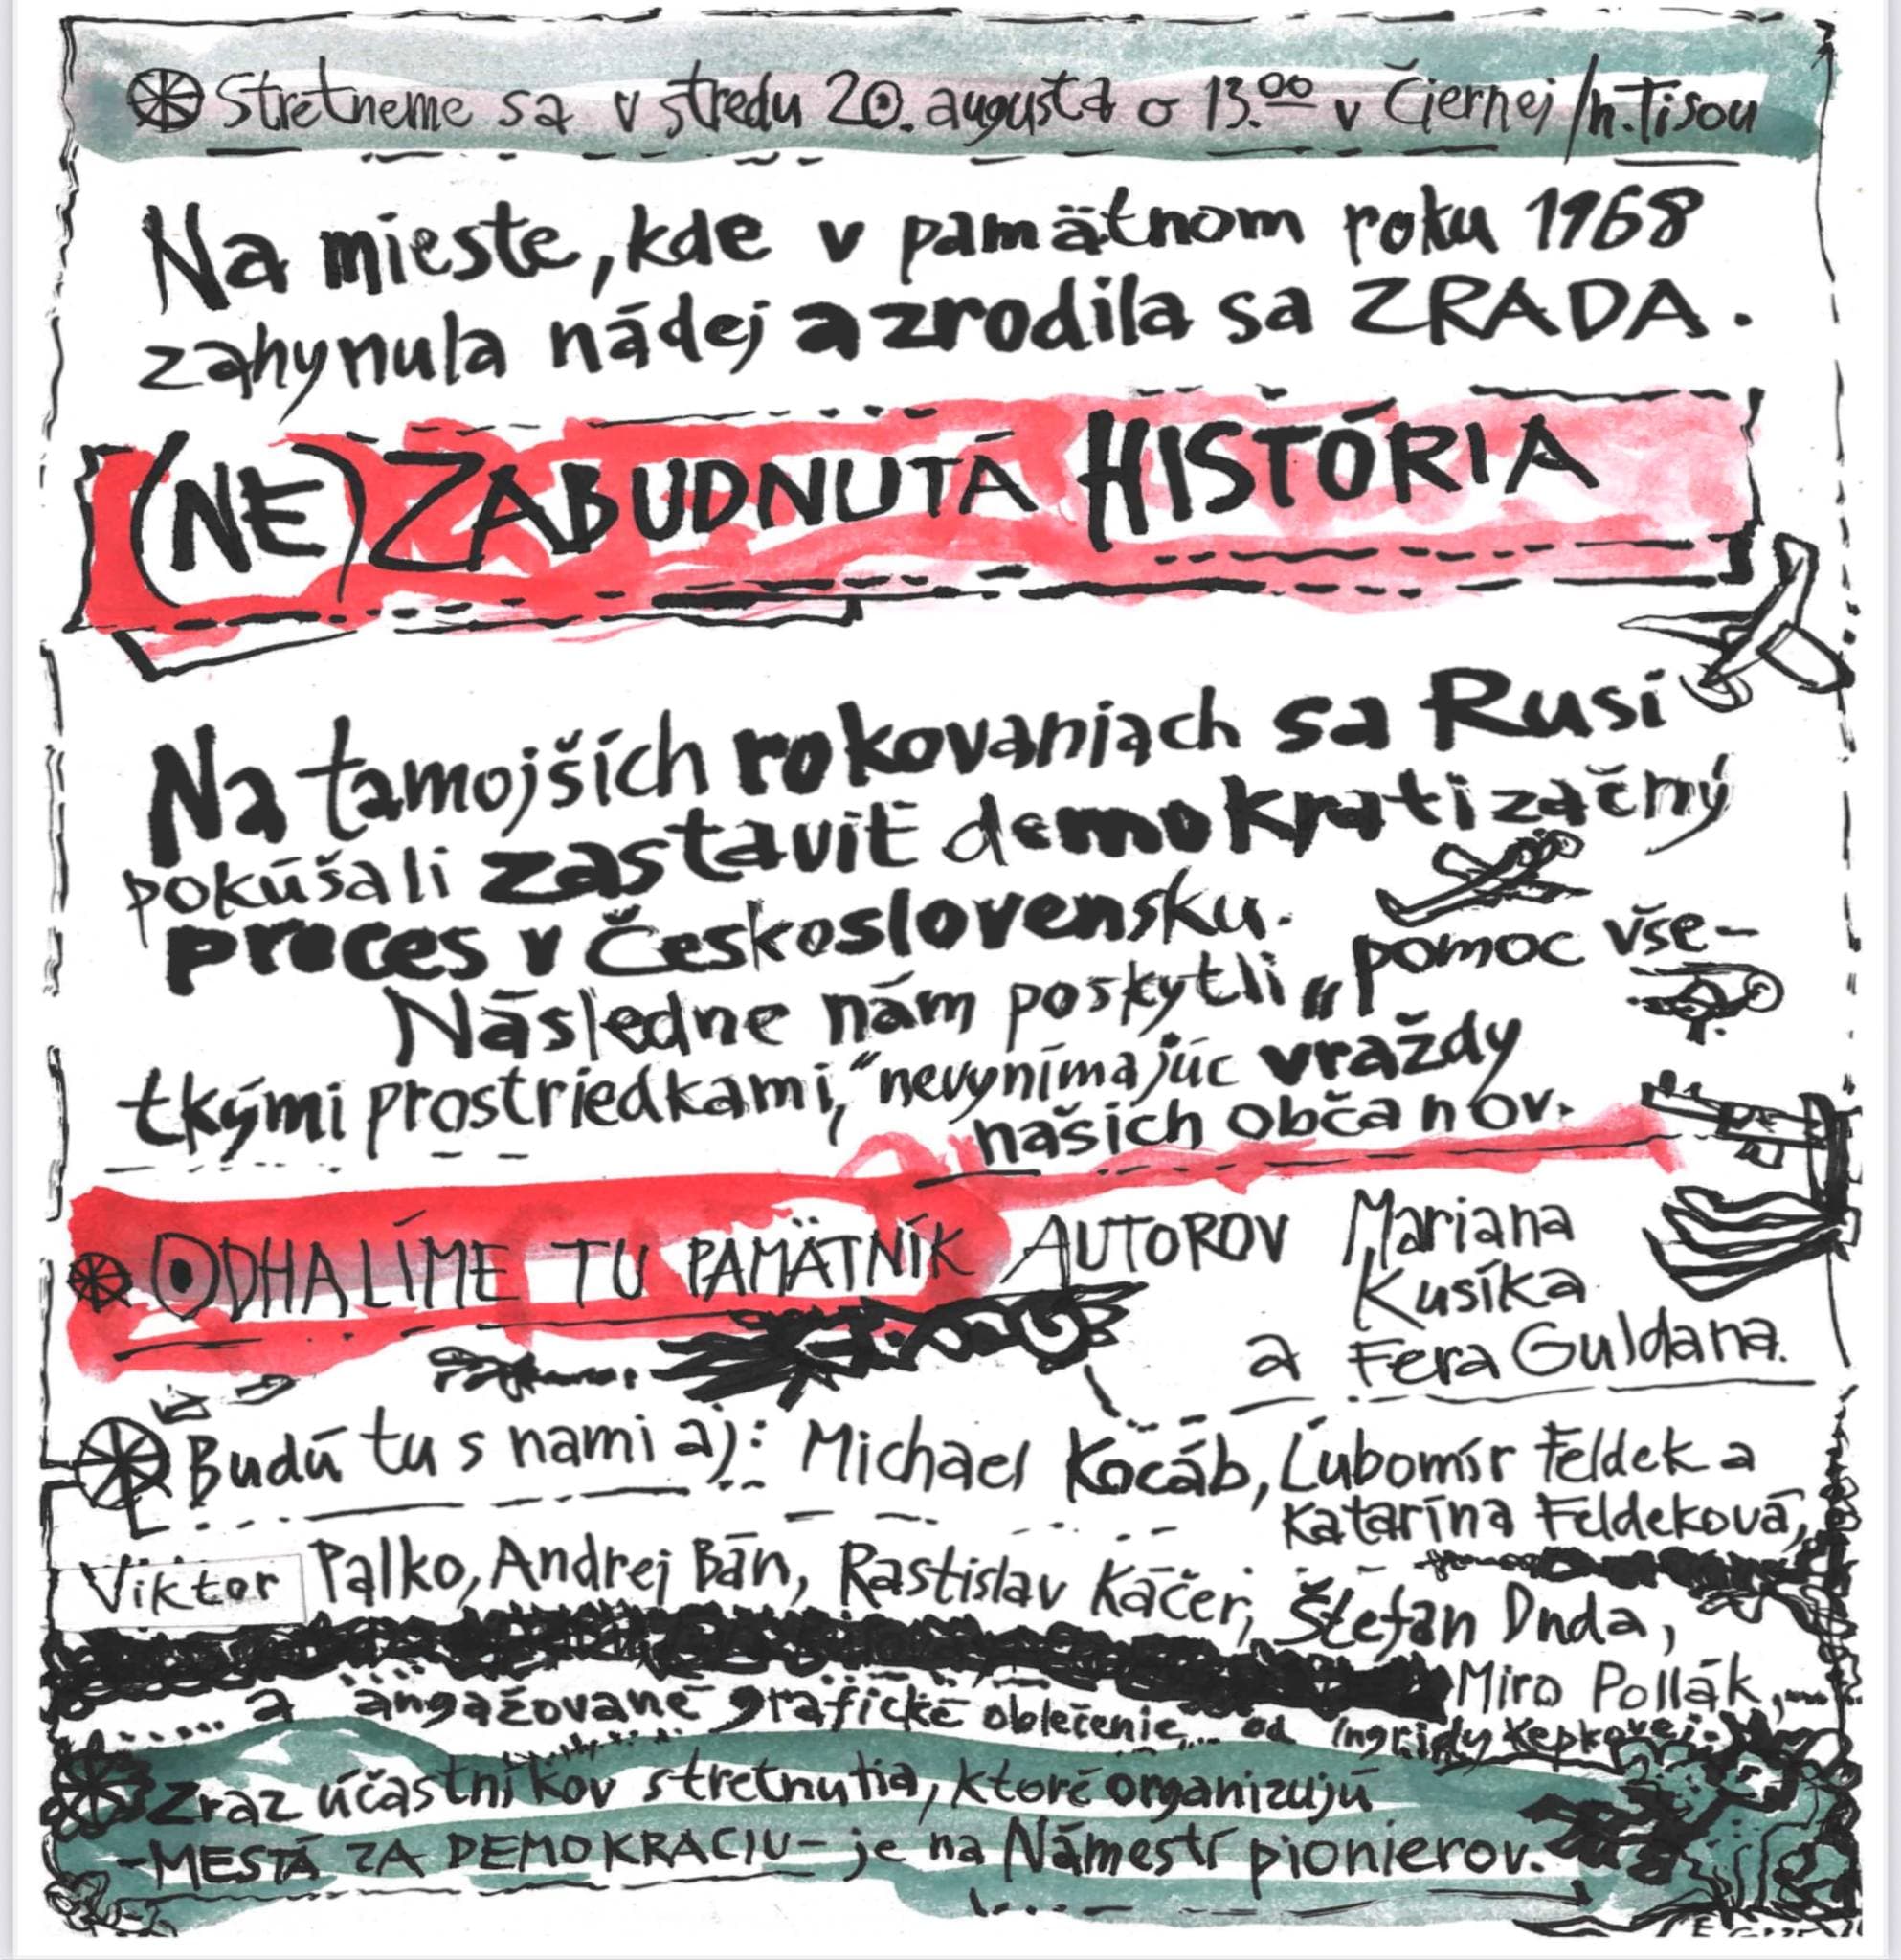 Stretneme sa v stredu 20. augusta o 13.00 v Čiernej /n.Tisou
Na mieste, kde v pamätnom roku 1968
zahynula nádej a zrodila sa ZRADA.
(NE) ZABUDNUTÁ HISTÓRIA
Na tamojších rokovaniach sa Rusi
pokúšali zastaviť demokratizačný
proces v Československu.
Následne nám poskytli „pomoc vše-
tkými prostriedkami," nevynímajúc vraždy
našich občanov.
ODHALÍME TU PAMÄTNÍK AUTOROV Mariana
Kusíka
a Fera Guldana.
Budú tu s nami aj: Michael Kocáb, Ľubomír Feldek a
Katarína Feldeková,
Viktor Palko, Andrej Bán, Rastislav Káčer, Štefan Dnda,
Miro Pollák,...
..... a angažované grafické oblečenie od Ingridy Kepkovej.
Zraz účastníkov stretnutia, ktoré organizujú
-MESTÁ ZA DEMOKRACIU- je na Námestí pionierov.